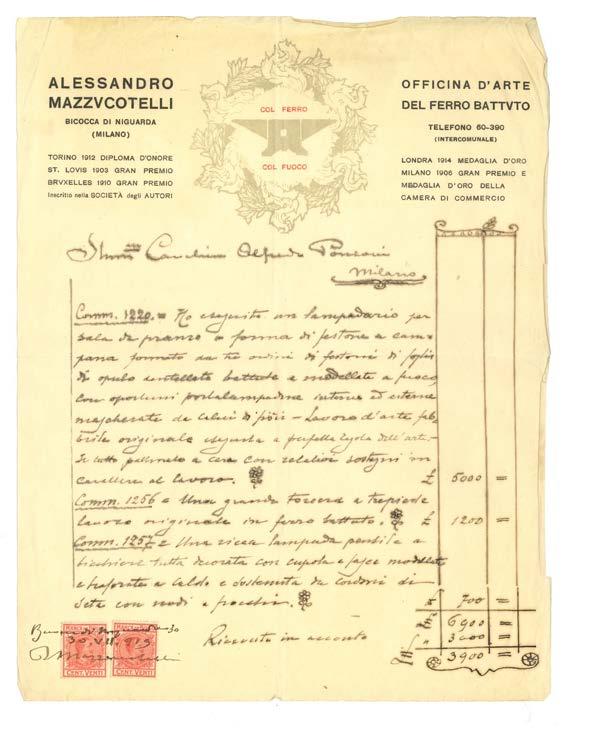 ALESSANDRO
MAZZVCOTELLI
BICOCCA DI NIGUARDA
(MILANO)
TORINO 1912 DIPLOMA D'ONORE
ST. LOVIS 1903 GRAN PREMIO
BRVXELLES 1910 GRAN PREMIO
Inscritto nella SOCIETÀ degli AUTORI
COL FERRO
COL FUOCO
OFFICINA D'ARTE
DEL FERRO BATTVTO
TELEFONO 60-390
(INTERCOMUNALE)
LONDRA 1914 MEDAGLIA D'ORO
MILANO 1906 GRAN PREMIO E
MEDAGLIA D'ORO DELLA
CAMERA DI COMMERCIO
Alfredo Ponzoni
Milano
Comm. 1220 = Ho eseguito un lampadario per
sala da pranzo a forma di festone a cam-
pana formato da tre ordini di festoni di foglie
di opulo dentellate battute e modellate a fuoco
con oportuni portalampadine interne ed esterne
mascherate da calici di fiori - Lavoro d'arte fab-
brile originale eseguita a perfetta regola dell'arte.
Il tutto patinato a cera con relativi sostegni in
al lavoro. £ 5000 =
Comm. 1256 = Una grande a trepiede
lavoro originale in ferro battuto. £ 1200 =
Comm. 1257 = Una ricca lampada pensile a
bicchiere tutta decorata con cupola e fasce modellate
e traforate a caldo e sostenuta da cordoni di
seta con nodi e fiocchi. £ 700 =
6900 =
Ricevuto in acconto 3000 =
3900 =
30 VII 919
MARCA
CENT. VENTI
MARCA
CENT. VENTI